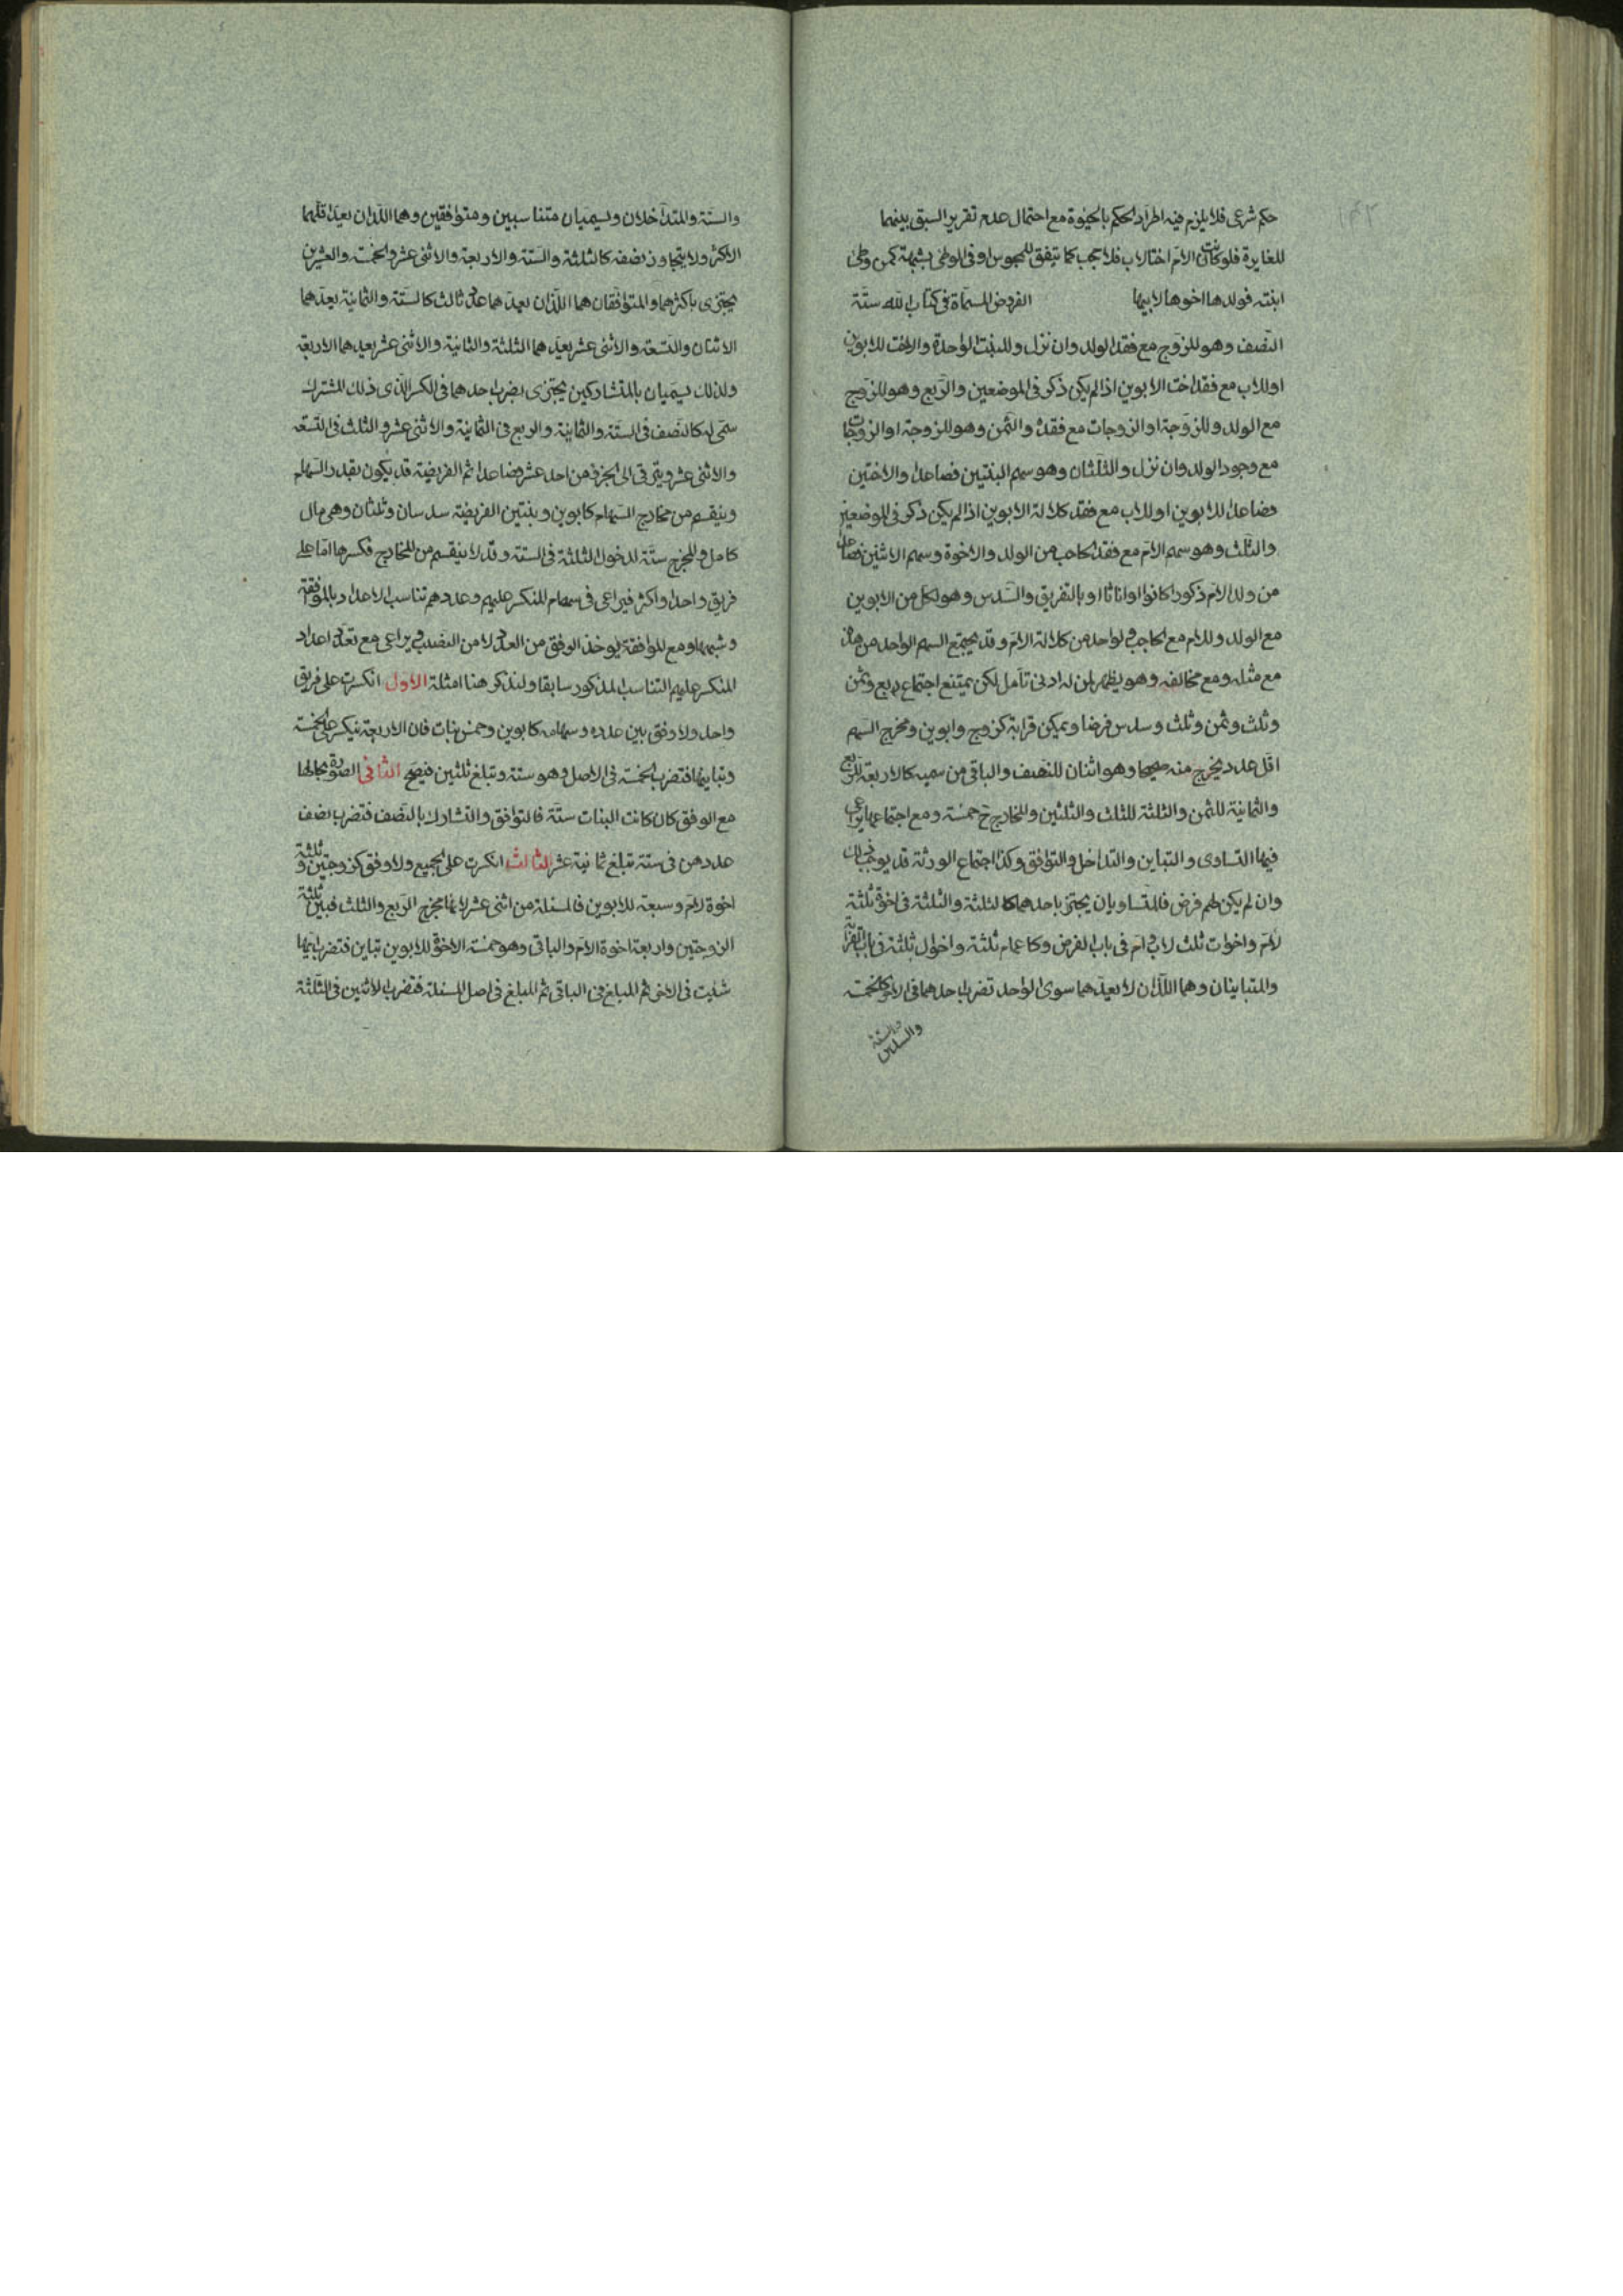 حكم شرعى فلا يلزم فيه اطراد الحكم بالحيوة مع احتمال عدم تقرير السبق بينهما
للغايرة فلو كانت الام اختا لاب فلا حجب كما يتفق للمجوس او فى الوطى بشبهة كمن وطئ
ابنته فولدها اخوها لابيها الفروض المسماة فى كتاب الله ستة
النصف وهو للزوج مع فقد الولد وان نزل وللبنت الواحدة والاخت للابوين
او للاب مع فقد اخت الابوين اذا لم يكن ذكر فى الموضعين والربع وهو للزوج
مع الولد وللزوجة او الزوجات مع فقده والثمن وهو للزوجة او الزوجات
مع وجود الولد وان نزل والثلثان وهو سهم البنتين فصاعدا والاختين
فصاعدا للابوين او للاب مع فقد كلالة الابوين اذا لم يكن ذكر فى الموضعين
والثلث وهو سهم الام مع فقد الحاجب من الولد والاخوة وسهم الاثنين فصاعدا
من ولد الام ذكورا كانوا او اناثا او بالتفريق والسدس وهو لكل من الابوين
مع الولد وللام مع الحاجب ولواحد من كلالة الام وقد يجتمع السهم الواحد من هذه
مع مثله ومع مخالفه وهو يظهر لمن له ادنى تأمل لكن يمتنع اجتماع ربع وثمن
وثلث وثمن وثلث وسدس فرضا ويمكن قرابة كزوج وابوين ومخرج السهم
اقل عدد يخرج منه صحيحا وهو اثنان للنصف والباقى من سميه كالاربعة للربع
والثمانية للثمن والثلثة للثلث والثلثين والمخارج ح خمسة ومع اجتماعها يراعى
فيها التساوى والتباين والتداخل والتوافق وكذا اجتماع الورثة قد يوجب ذلك
وان لم يكن لهم فرض فالمتساويان يجتزى باحدهما كالثلثة والثلثة فى اخوة ثلثة
لام واخوات ثلث لاب وام فى باب الفرض وكاعمام ثلثة واخوال ثلثة فى باب القرابة
والمتباينان وهما اللذان لا يعدهما سوى الواحد تضرب احدهما فى الاخر كالخمسة
والستة
والستة والمتداخلان ويسميان متناسبين ومتوافقين وهما اللذان يعد اقلهما
الاكثر ولا يتجاوز نصفه كالثلثة والستة والاربعة والاثنى عشر والخمسة والعشرين
يجتزى باكثرهما والمتوافقان هما اللذان يعدهما عدد ثالث كالستة والثمانية يعدهما
الاثنان والتسعة والاثنى عشر يعدهما الثلثة والثمانية والاثنى عشر يعدهما الاربعة
ولذلك يسميان بالمتشاركين يجتزى بضرب احدهما فى الكسر الذى ذلك المشترك
سمى له كالنصف فى الستة والثمانية والربع فى الثمانية والاثنى عشر والثلث فى التسعة
والاثنى عشر ويترقى الى الجزء من احد عشر فصاعدا ثم الفريضة قد يكون بقدر السهام
وينقسم من مخارج السهام كابوين وبنتين الفريضة سدسان وثلثان وهى مال
كامل والمخرج ستة لدخول الثلثة فى الستة وقد لا ينقسم من المخارج فكسرها اما على
فريق واحد او اكثر فيراعى فى سهام المنكسر عليهم وعددهم تناسب الاعداد بالموافقة
وشبهها ومع الموافقة يوخذ الوفق من العدد لا من النصيب ويراعى مع تعدد اعداد
المنكسر عليهم التناسب المذكور سابقا ولنذكر هنا امثلة الاول انكسرت على فريق
واحد ولا وفق بين عدده وسهامه كابوين وخمس بنات فان الاربعة ينكسر على الخمسة
وتباينها فتضرب الخمسة فى الاصل وهو ستة وتبلغ ثلثين فيصح الثانى الصورة بحالها
مع الوفق كان كانت البنات ستة فالتوافق والتشارك بالنصف فتضرب نصف
عددهن فى ستة تبلغ ثمانية عشر الثالث انكسرت على الجميع ولا وفق كزوجتين وثلثة
اخوة لام وسبعة للابوين فالمسئلة من اثنى عشر لانها مخرج الربع والثلث فبين ثلثة
الزوجتين واربعة اخوة الام والباقى وهو خمسة الاخوة للابوين تباين فتضرب ايها
شئت فى الاخر ثم المبلغ فى الباقى ثم المبلغ فى اصل المسئلة فتضرب الاثنين فى الثلثة